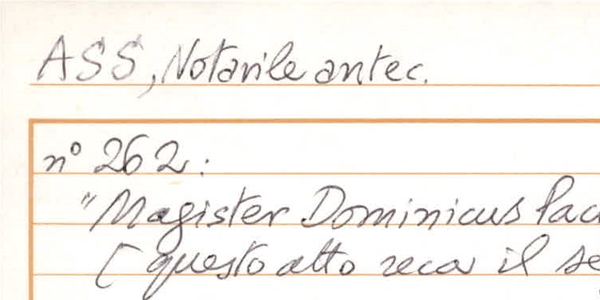 ASS, Notarile antec.
n° 262:
"Magister Dominicus
[questo atto reca il